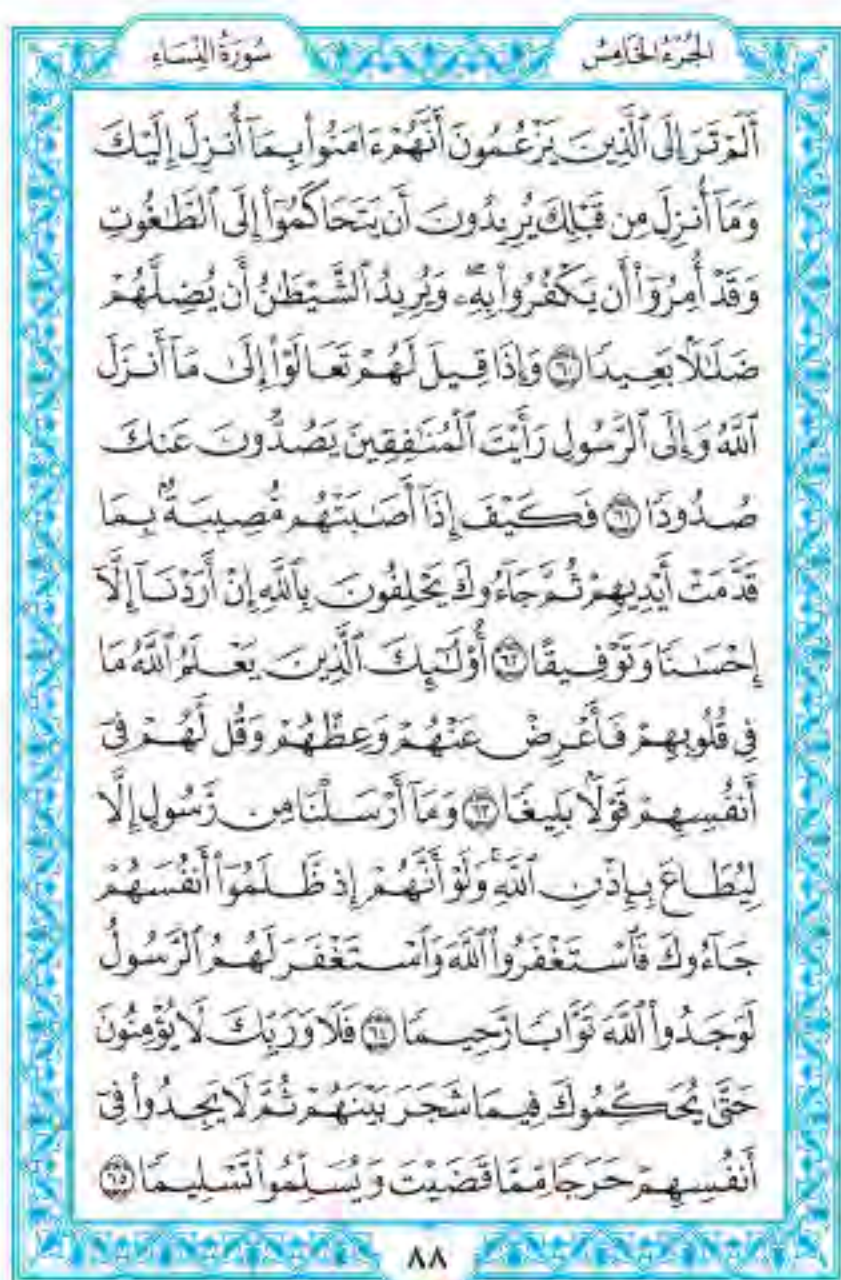 الجُزْءُ الخَامِسُ
سُورَةُ النِّسَاءِ
أَلَمۡ تَرَ إِلَى ٱلَّذِينَ يَزۡعُمُونَ أَنَّهُمۡ ءَامَنُواْ بِمَآ أُنزِلَ إِلَيۡكَ
وَمَآ أُنزِلَ مِن قَبۡلِكَ يُرِيدُونَ أَن يَتَحَاكَمُوٓاْ إِلَى ٱلطَّٰغُوتِ
وَقَدۡ أُمِرُوٓاْ أَن يَكۡفُرُواْ بِهِۦۖ وَيُرِيدُ ٱلشَّيۡطَٰنُ أَن يُضِلَّهُمۡ
ضَلَٰلَۢا بَعِيدٗا ٦٠ وَإِذَا قِيلَ لَهُمۡ تَعَالَوۡاْ إِلَىٰ مَآ أَنزَلَ
ٱللَّهُ وَإِلَى ٱلرَّسُولِ رَأَيۡتَ ٱلۡمُنَٰفِقِينَ يَصُدُّونَ عَنكَ
صُدُودٗا ٦١ فَكَيۡفَ إِذَآ أَصَٰبَتۡهُم مُّصِيبَةُۢ بِمَا
قَدَّمَتۡ أَيۡدِيهِمۡ ثُمَّ جَآءُوكَ يَحۡلِفُونَ بِٱللَّهِ إِنۡ أَرَدۡنَآ إِلَّآ
إِحۡسَٰنٗا وَتَوۡفِيقًا ٦٢ أُوْلَٰٓئِكَ ٱلَّذِينَ يَعۡلَمُ ٱللَّهُ مَا
فِي قُلُوبِهِمۡ فَأَعۡرِضۡ عَنۡهُمۡ وَعِظۡهُمۡ وَقُل لَّهُمۡ فِيٓ
أَنفُسِهِمۡ قَوۡلَۢا بَلِيغٗا ٦٣ وَمَآ أَرۡسَلۡنَا مِن رَّسُولٍ إِلَّا
لِيُطَاعَ بِإِذۡنِ ٱللَّهِۚ وَلَوۡ أَنَّهُمۡ إِذ ظَّلَمُوٓاْ أَنفُسَهُمۡ
جَآءُوكَ فَٱسۡتَغۡفَرُواْ ٱللَّهَ وَٱسۡتَغۡفَرَ لَهُمُ ٱلرَّسُولُ
لَوَجَدُواْ ٱللَّهَ تَوَّابٗا رَّحِيمٗا ٦٤ فَلَا وَرَبِّكَ لَا يُؤۡمِنُونَ
حَتَّىٰ يُحَكِّمُوكَ فِيمَا شَجَرَ بَيۡنَهُمۡ ثُمَّ لَا يَجِدُواْ فِيٓ
أَنفُسِهِمۡ حَرَجٗا مِّمَّا قَضَيۡتَ وَيُسَلِّمُواْ تَسۡلِيمٗا ٦٥
٨٨